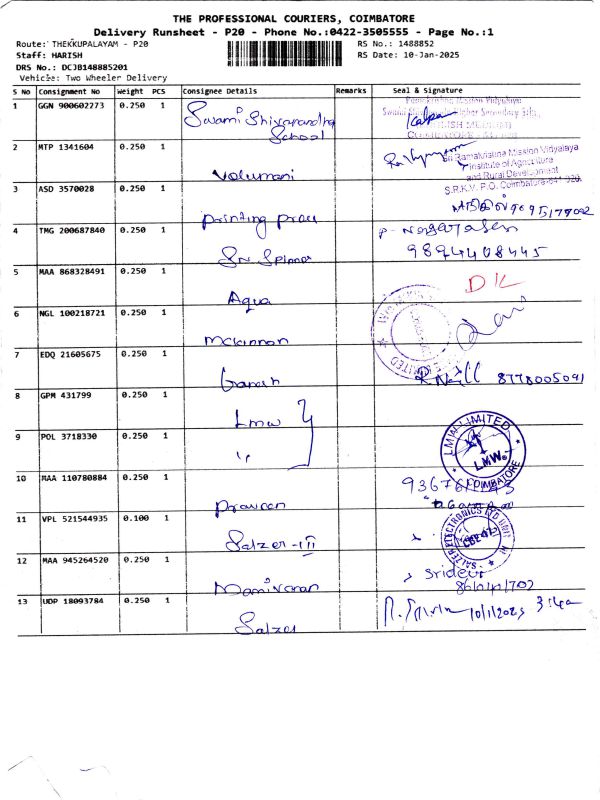 THE PROFESSIONAL COURIERS, COIMBATORE
Delivery Runsheet - P20 - Phone No.:0422-3505555 - Page No.:1
Route: THEKKUPALAYAM - P20 RS No.: 1488852
Staff: HARISH RS Date: 10-Jan-2025
DRS No.: DCJB148885201
Vehicle: Two Wheeler Delivery
S No Consignment No Weight PCS Consignee Details Remarks Seal & Signature
1 GGN 900602273 0.250 1 Swami Shivananda School
2 MTP 1341604 0.250 1 Sri Ramakrishna Mission Vidyalaya
Institute of Agriculture
and Rural Development
S.R.K.V. P.O. Coimbatore-641 020.
3 ASD 3570028 0.250 1 Printing
4 TMG 200687840 0.250 1 P. Nagarajan
9894408445
5 MAA 868328491 0.250 1 Aqua
6 NGL 100218721 0.250 1 Mckinnon
7 EDQ 21605675 0.250 1 Ganesh 8778005091
8 GPM 431799 0.250 1 Lmw
9 POL 3718330 0.250 1 " LMW LIMITED
LMW
COIMBATORE
10 MAA 110780884 0.250 1 Praveen
11 VPL 521544935 0.100 1 Salzer-III SALZER ELECTRONICS LTD UNIT III
12 MAA 945264520 0.250 1 Manivanan Sridevi
13 UDP 18093784 0.250 1 Salzer 10/1/2025